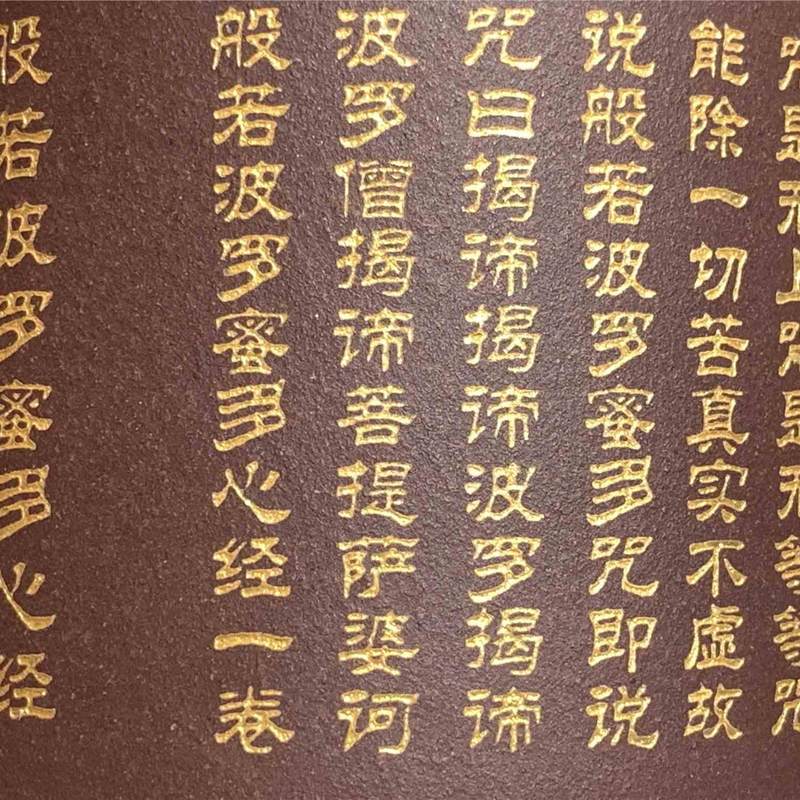 咒是无上咒是无等等咒
能除一切苦真实不虚故
说般若波罗蜜多咒即说
咒曰揭谛揭谛波罗揭谛
波罗僧揭谛菩提萨婆诃
般若波罗蜜多心经一卷
般若波罗蜜多心经